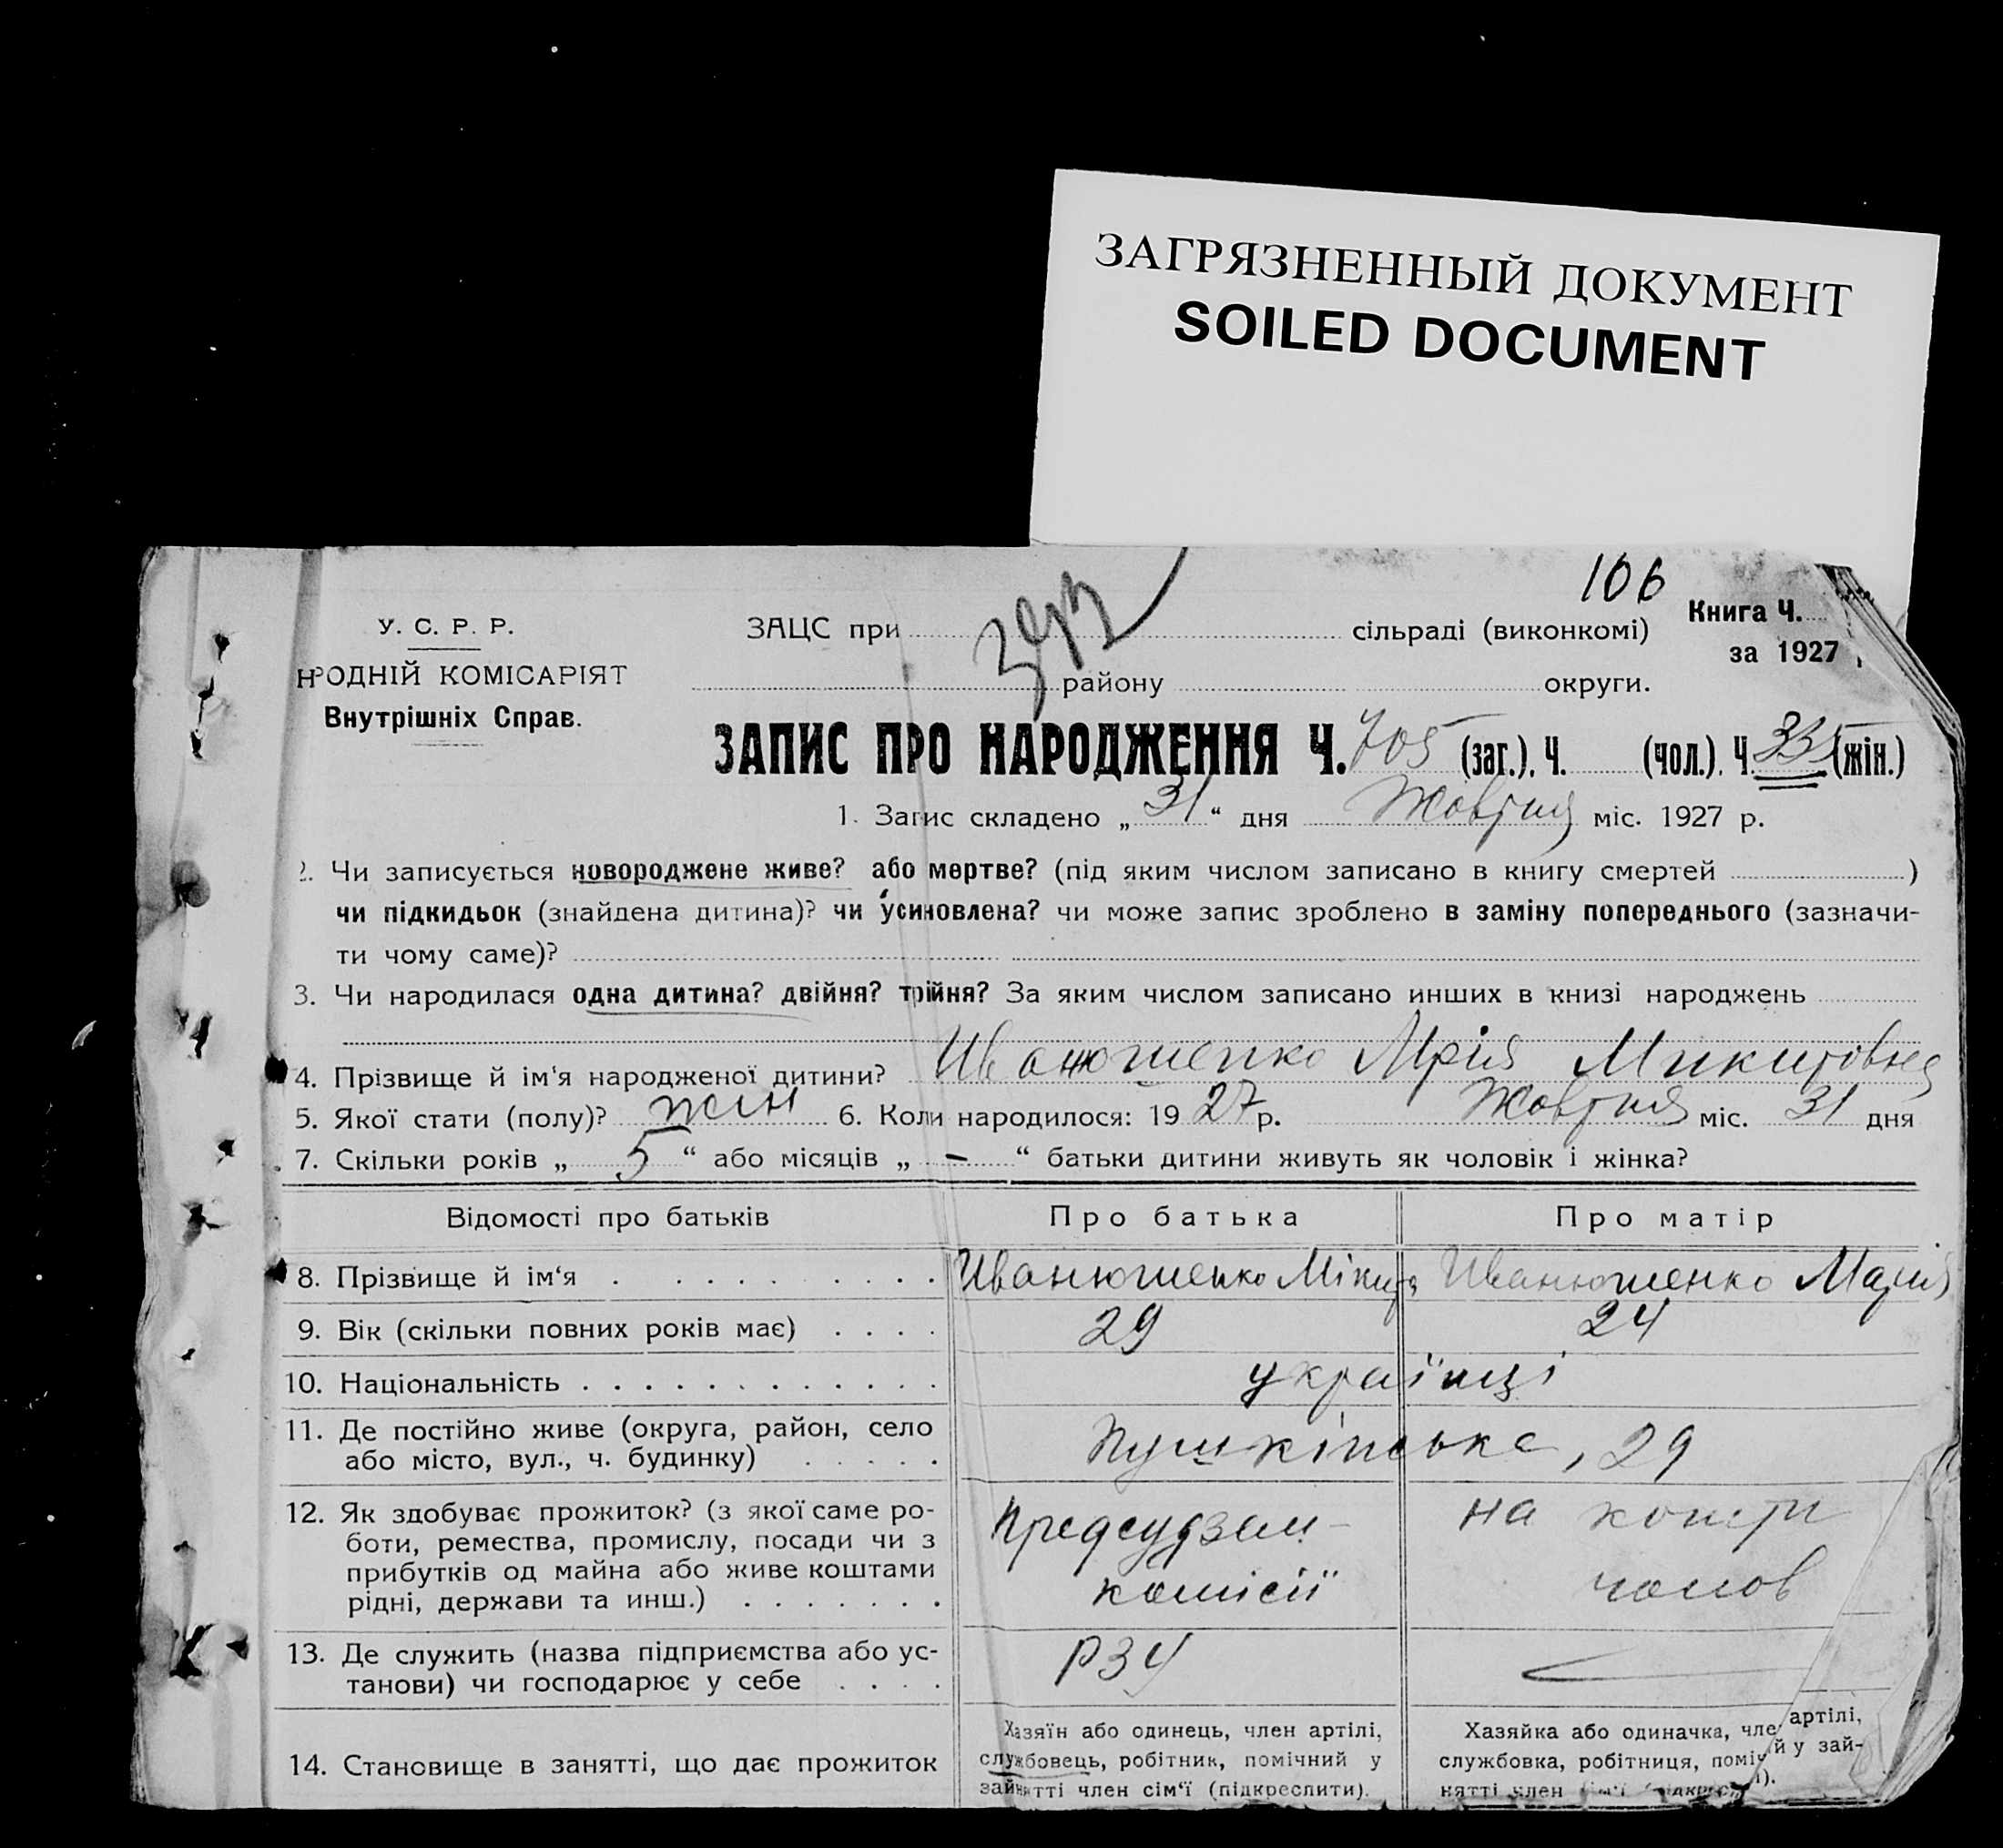 ЗАГРЯЗНЕННЫЙ ДОКУМЕНТ
SOILED DOCUMENT
106
У. С. Р. Р.
НРОДНІЙ КОМІСАРІЯТ
Внутрішніх Справ.
ЗАЦС при сільраді (виконкомі)
району округи.
Книга Ч.
за 1927
ЗАПИС ПРО НАРОДЖЕННЯ Ч. 705 (заг.). Ч. (чол.). Ч. 335 (жін.)
1. Запис складено „31“ дня Жовтня міс. 1927 р.
2. Чи записується новороджене живе? або мертве? (під яким числом записано в книгу смертей )
чи підкидьок (знайдена дитина)? чи усиновлена? чи може запис зроблено в заміну попереднього (зазначи-
ти чому саме)?
3. Чи народилася одна дитина? двійня? трійня? За яким числом записано инших в книзі народжень
4. Прізвище й ім'я народженої дитини? Иванюшенко Мрія Микитовна
5. Якої стати (полу)? жін 6. Коли народилося: 1927 р. Жовтня міс. 31 дня
7. Скільки років „5“ або місяців „-“ батьки дитини живуть як чоловік і жінка?
Відомості про батьків Про батька Про матір
8. Прізвище й ім'я . . . . . . . . . . Иванюшенко Мікита Иванюшенко Марія
9. Вік (скільки повних років має) . . . . 29 24
10. Національність . . . . . . . . . . . . . українці
11. Де постійно живе (округа, район, село
або місто, вул., ч. будинку) . . . . . Пушкінська, 29
12. Як здобуває прожиток? (з якої саме ро-
боти, ремества, промислу, посади чи з
прибутків од майна або живе коштами
рідні, держави та инш.) . . . . . . .
Предсудзем-
комісії
на кошти
чолов
13. Де служить (назва підприємства або ус-
танови) чи господарює у себе . . . .
РЗУ
14. Становище в занятті, що дає прожиток
Хазяїн або одинець, член артілі,
службовець, робітник, помічний у
зайнятті член сім'ї (підкреслити).
Хазяйка або одиначка, член артілі,
службовка, робітниця, поміч й у зай-
нятті член